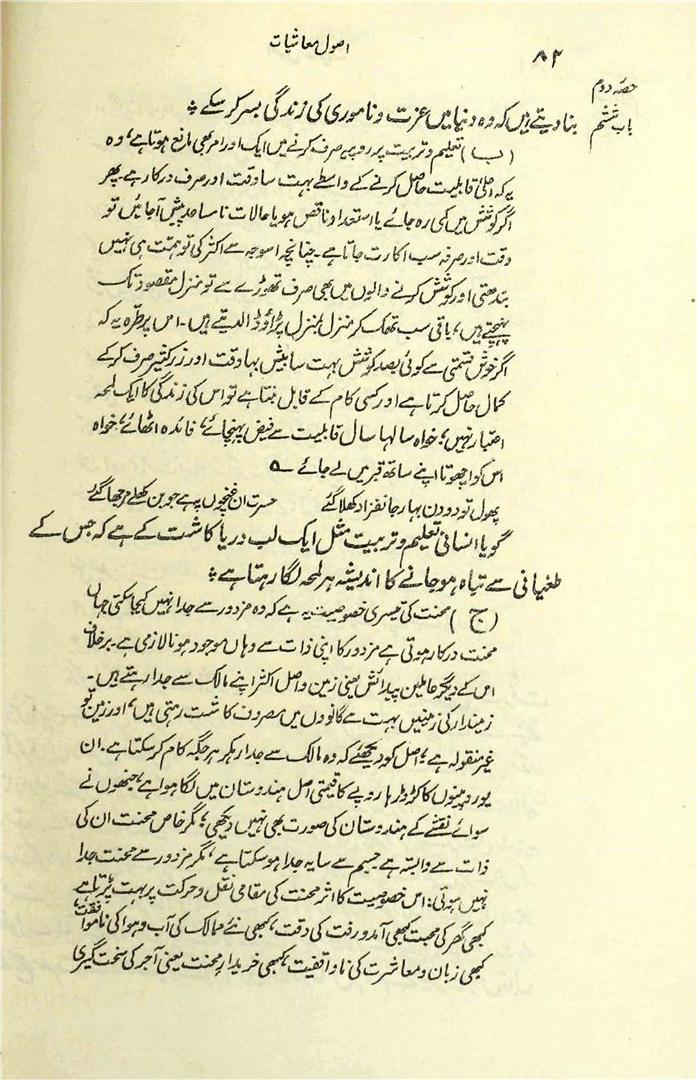 ۸۲
اصول معاشیات
حصہ دوم
باب ششم
بنا دیتے ہیں کہ وہ دنیا میں عزت و ناموری کی زندگی بسر کر سکے ؞
(ب) تعلیم و تربیت پر روپیہ صرف کرنے میں ایک اور امر بھی مانع ہوتا ہے، وہ
یہ کہ اعلیٰ قابلیت حاصل کرنے کے واسطے بہت سا وقت اور صرف درکار ہے۔ پھر
اگر کوشش میں کمی رہ جائے یا استعداد ناقص ہو یا حالات نا مساعد پیش آجائیں تو
وقت اور صرفہ سب اکارت جاتا ہے۔ چنانچہ اسوجہ سے اکثر کی تو ہمت ہی نہیں
بندھتی اور کوشش کرنے والوں میں بھی صرف تھوڑے سے تو منزل مقصود تک
پہنچتے ہیں، باقی سب تھک کر منزل بمنزل پڑاؤ ڈالدیتے ہیں۔ اس پر طرّہ یہ کہ
اگر خوش قسمتی سے کوئی بصد کوشش بہت سا بیش بہا وقت اور زرکثیر صرف کرکے
کمال حاصل کرتا ہے اور کسی کام کے قابل بنتا ہے تو اس کی زندگی کا ایک لمحہ
اعتبار نہیں؛ خواہ سالہا سال قابلیت سے فیض پہنچائے، فائدہ اٹھائے، خواہ
اس کو اچھوتا اپنے ساتھ قبر میں لے جائے ؎
پھول تو دو دن بہار جانفزا دکھلا گئے حسرت ان غنچوں پہ ہے جو بن کھلے مرجھا گئے
گویا انسانی تعلیم و تربیت مثل ایک لب دریا کاشت کے ہے کہ جس کے
طغیانی سے تباہ ہو جانے کا اندیشہ ہر لمحہ لگا رہتا ہے ؞
(ج) محنت کی تیسری خصوصیت یہ ہے کہ وہ مزدور سے جدا نہیں کیجا سکتی جہاں
محنت درکار ہوتی ہے مزدور کا اپنی ذات سے وہاں موجود ہونا لازمی ہے۔ برخلاف
اس کے دیگر عاملین پیدائش یعنی زمین و اصل اکثر اپنے مالک سے جدا رہتے ہیں۔
زمیندار کی زمینیں بہت سے گانووں میں مصروف کاشت رہتی ہیں، اور زمین تو
غیر منقولہ ہے؛ اصل کو دیکھئے کہ وہ مالک سے جدا رہکر ہر جگہ کام کر سکتا ہے۔ ان
یورپینوں کا کڑوڑ ہا روپے کا قیمتی اصل ہندوستان میں لگا ہوا ہے، جنھوں نے
سوائے نقشے کے ہندوستان کی صورت بھی نہیں دیکھی؛ مگر خاص محنت ان کی
ذات سے وابستہ ہے جسم سے سایہ جدا ہو سکتا ہے، مگر مزدور سے محنت جدا
نہیں ہوتی: اس خصوصیت کا اثر محنت کی مقامی نقل و حرکت پر بہت پڑتا ہے
کبھی گھر کی محبت کبھی آمدورفت کی دقت، کبھی نئے ممالک کی آب و ہوا کی ناموافقت،
کبھی زبان و معاشرت کی ناواقفیت، کبھی خریدار محنت یعنی آجر کی سخت گیری